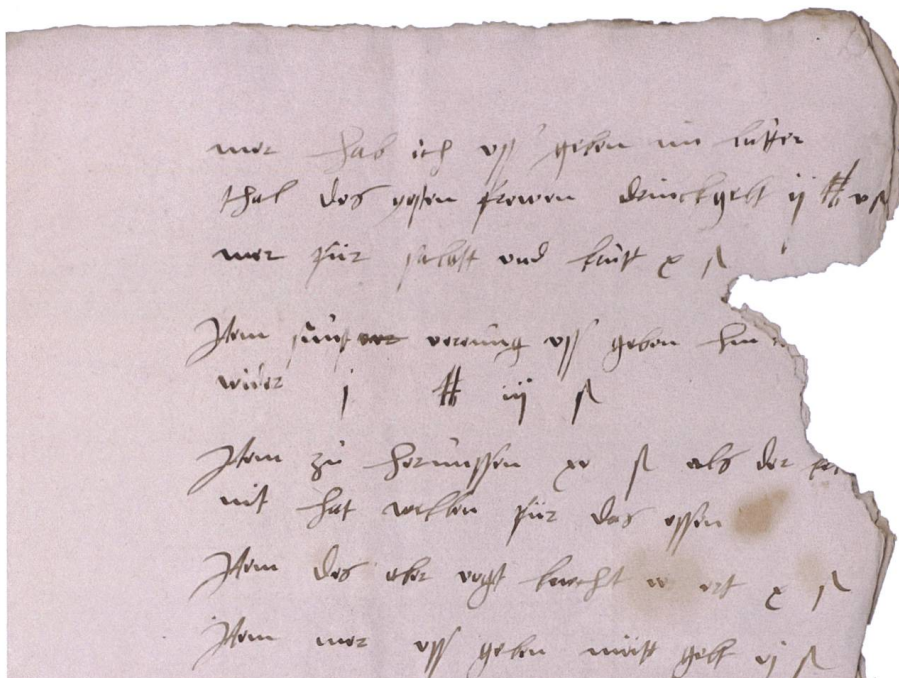 mer hab ich uss geben im lutter
thal des vogten frowen drinckgelt ij ℔ v ß
mer für selbst und lüt x ß
Item sunst verung uss geben hin
wider j ℔ iij ß
Item zu herumssen xv ß als der
nit hat wellen für das essen
Item des ober vogt knecht ort x ß
Item mer uss geben gelt vj ß